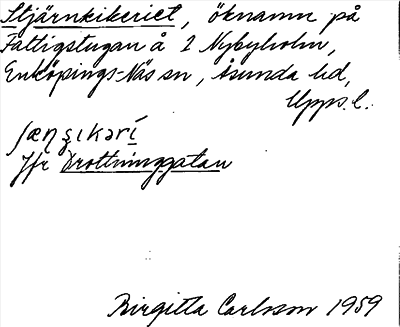 Stjärnkikeriet, öknamn på
Fattigstugan å 2 Nybyholm,
Enköpings-Näs sn, Åsunda hd,
Upps. l.
Jfr Drottninggatan
Birgitta Carlsson 1959